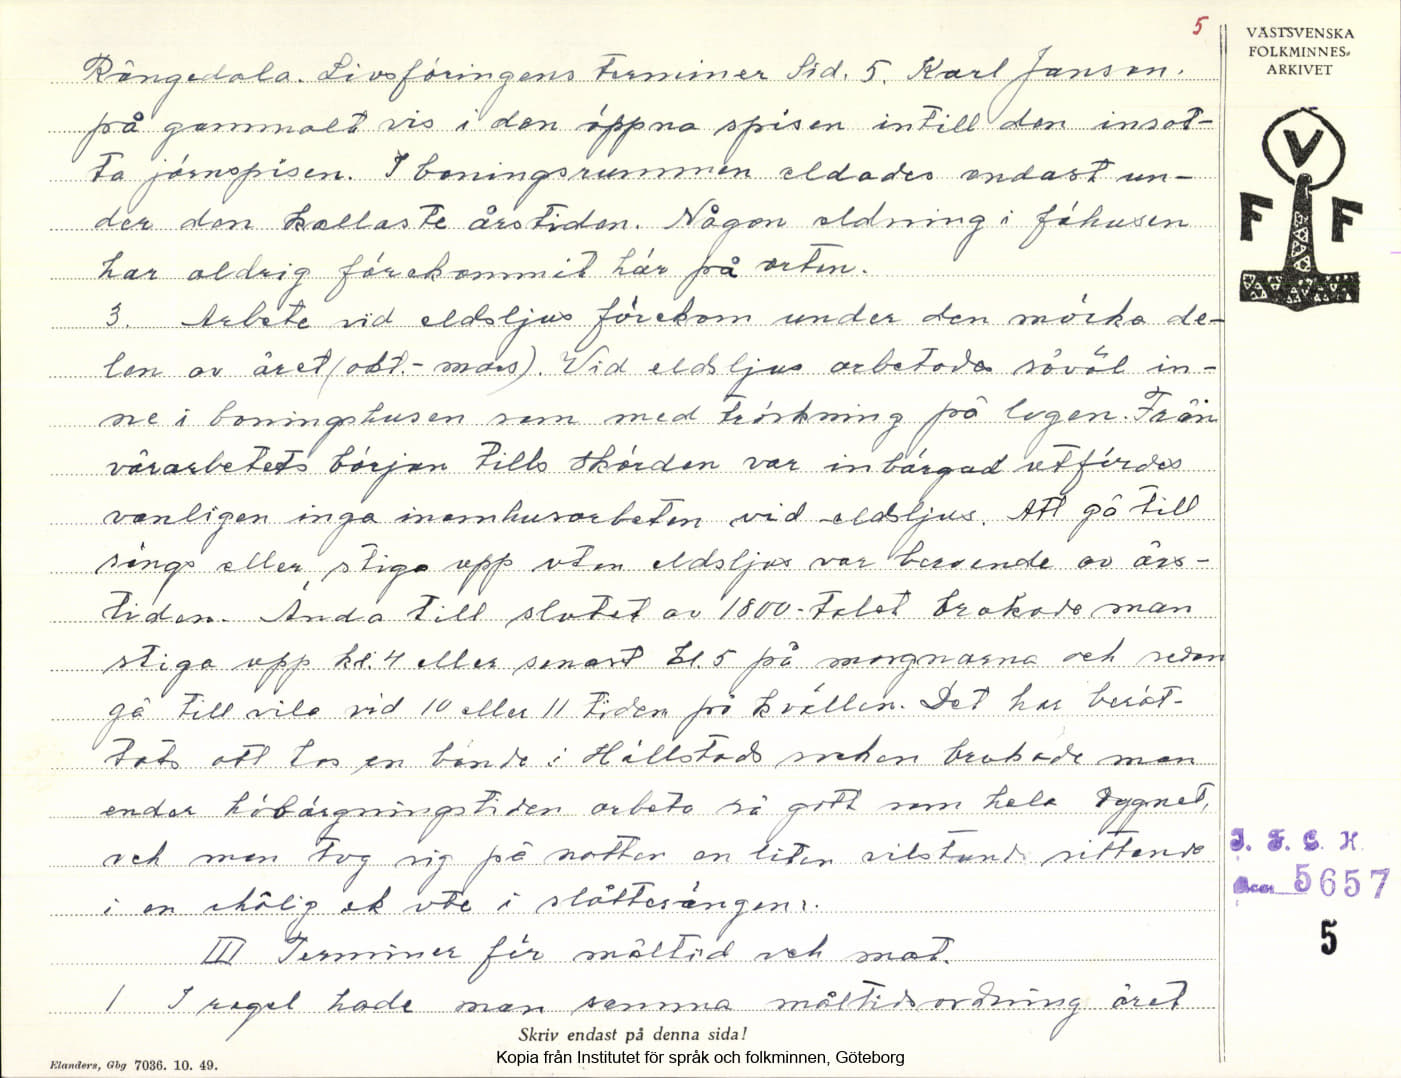 5
VÄSTSVENSKA
FOLKMINNES-
ARKIVET
V
F F
Rångedala. Livsföringens terminer Sid. 5. Karl Janson.
på gammalt vis i den öppna spisen intill den insat-
ta järnspisen. I boningsrummen eldades endast un-
der den kallaste årstiden. Någon eldning i fähusen
har aldrig förekommit här på orten.
3. Arbete vid eldsljus förekom under den mörka de-
len av året (okt.- mars). Vid eldsljus arbetades såväl in-
ne i boningshusen som med tröskning på logen. Från
vårarbetets början tills skörden var inbärgad utfördes
vanligen inga inomhusarbeten vid eldsljus. Att gå till
sängs eller stiga upp utan eldsljus var beroende av års-
tiden. Ända till slutet av 1800-talet brukade man
stiga upp kl. 4 eller senast kl. 5 på morgnarna och sedan
gå till vila vid 10 eller 11 tiden på kvällen. Det har berät-
tats att hos en bonde i Hällstads socken brukade man
under höbärgningstiden arbeta så gott som hela dygnet,
och man tog sig på natten en liten vilstund sittande
i en ihålig ek ute i slåtterängen.
III Terminer för måltid och mat.
1 I regel hade man samma måltidsordning året
I. F. G. H.
Acc. 5657
5
Skriv endast på denna sida!
Elanders, Gbg 7036. 10. 49.
Kopia från Institutet för språk och folkminnen, Göteborg